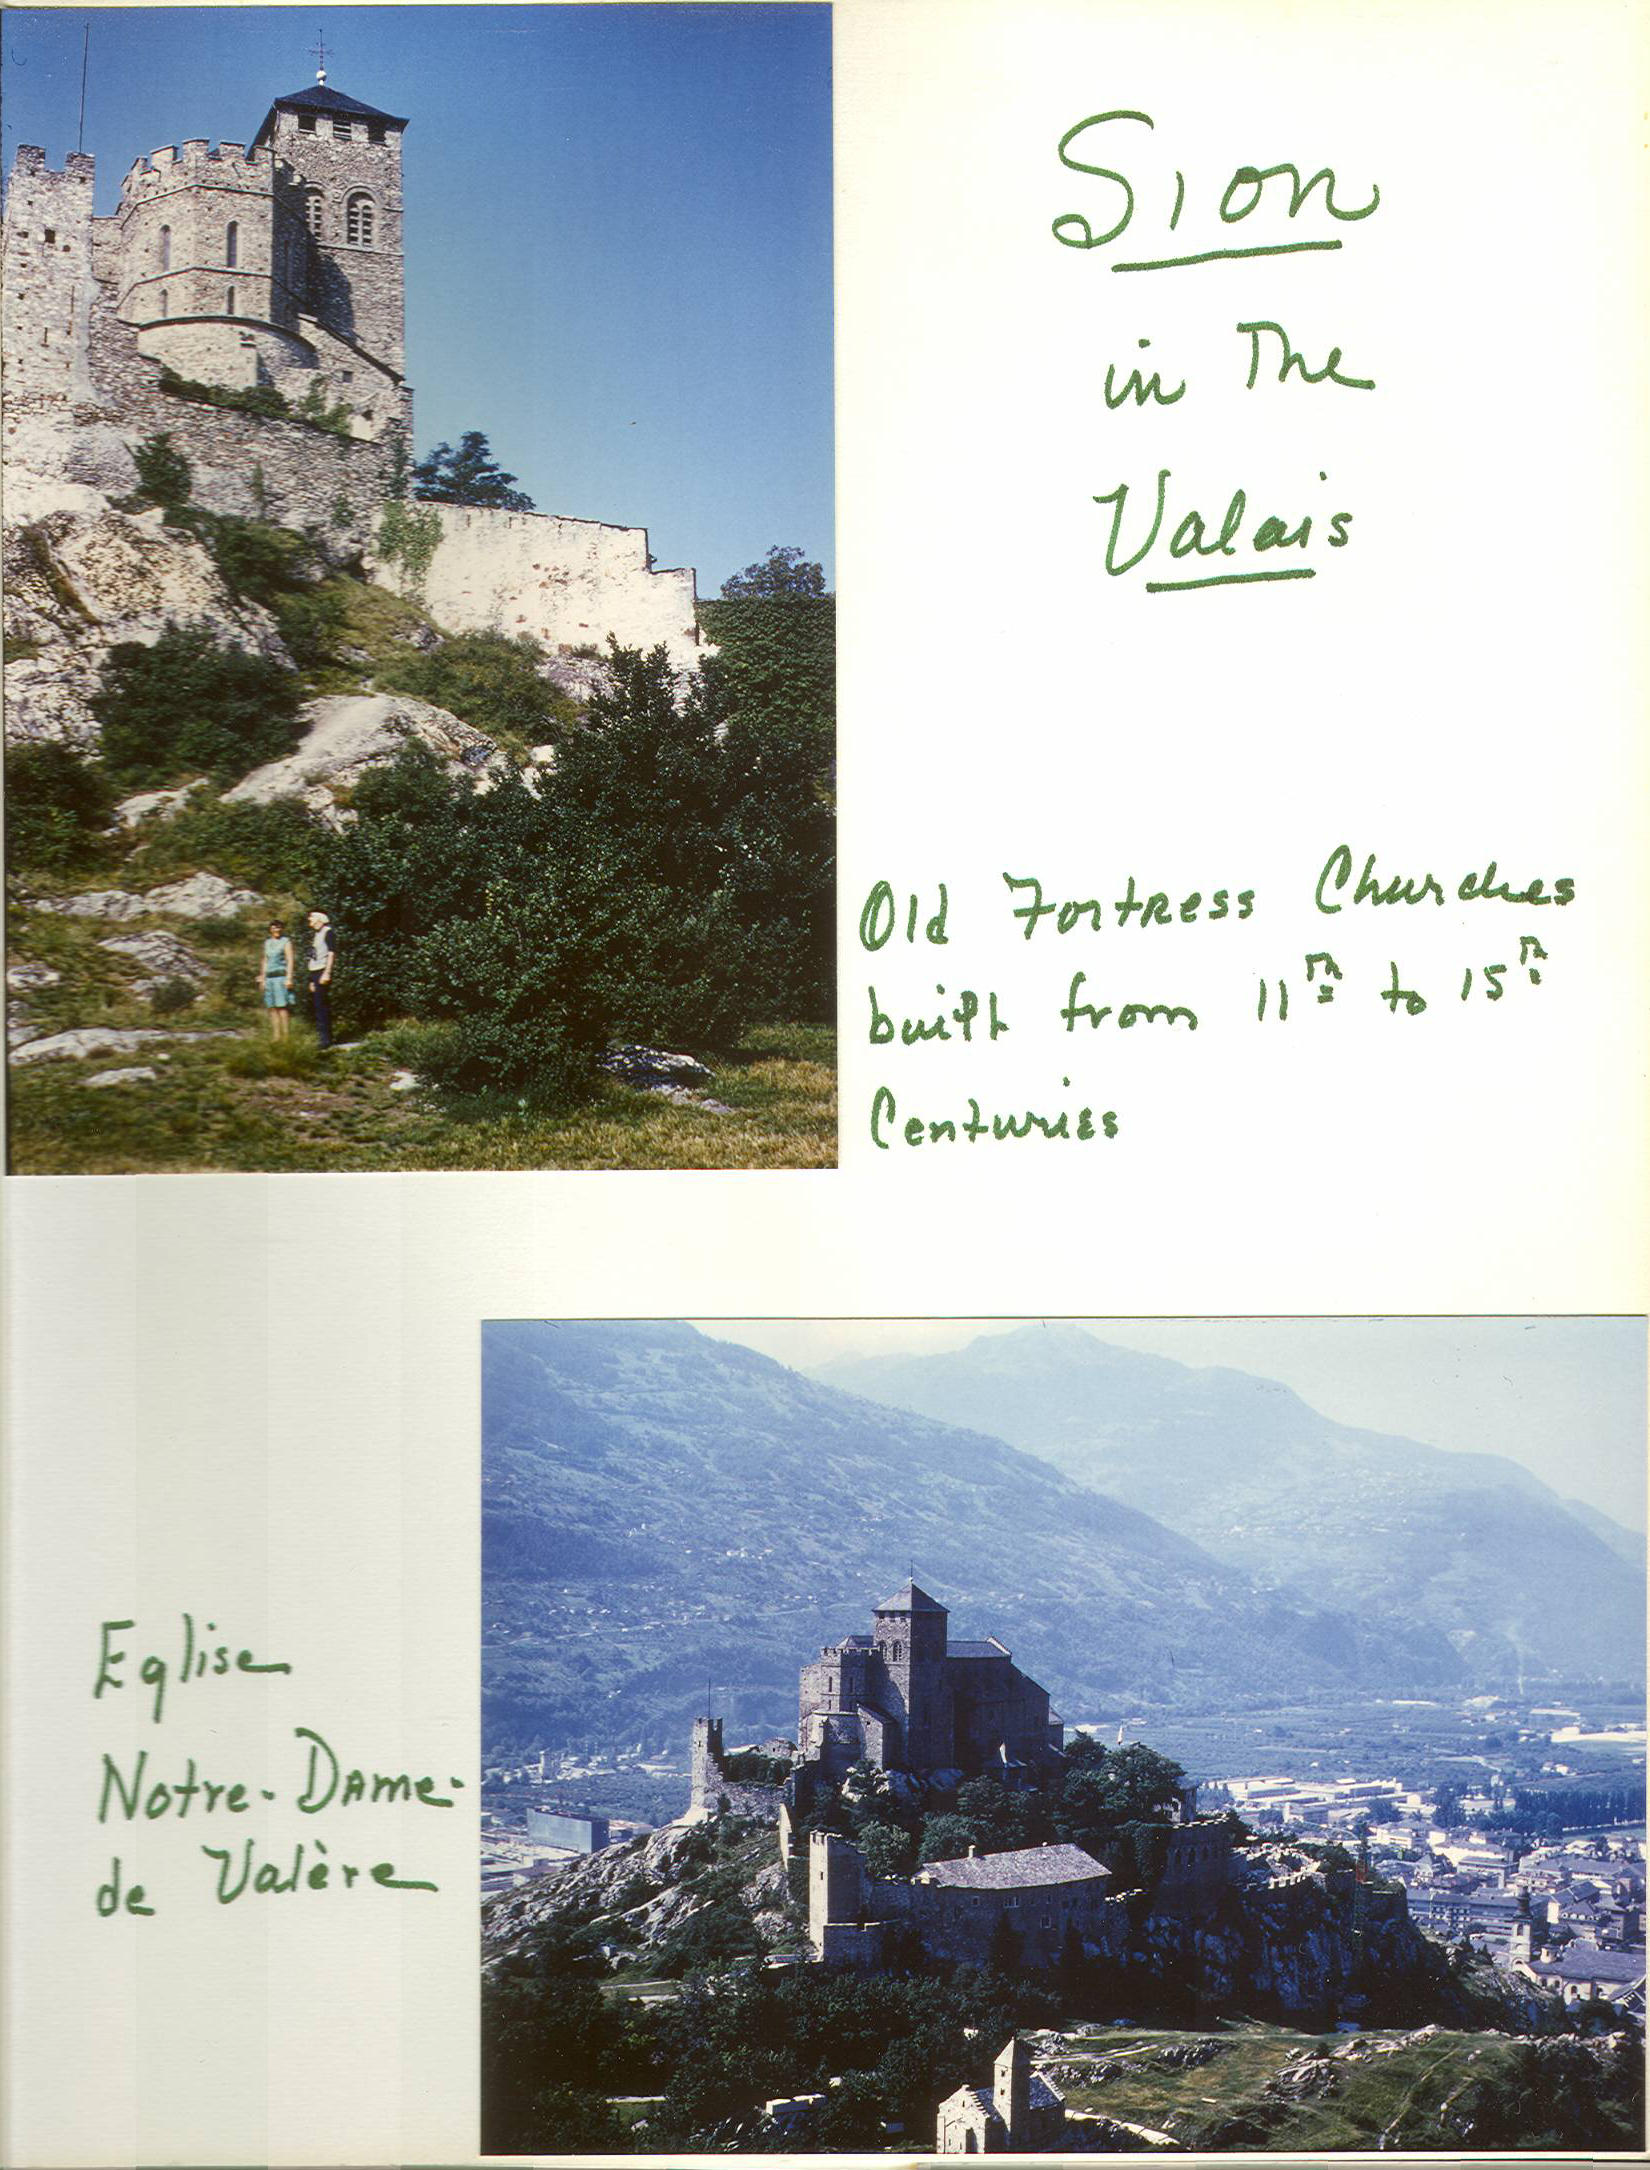 Sion
in The
Valais
Old Fortress Churches
built from 11th to 15th
Centuries
Eglise
Notre-Dame-
de Valère